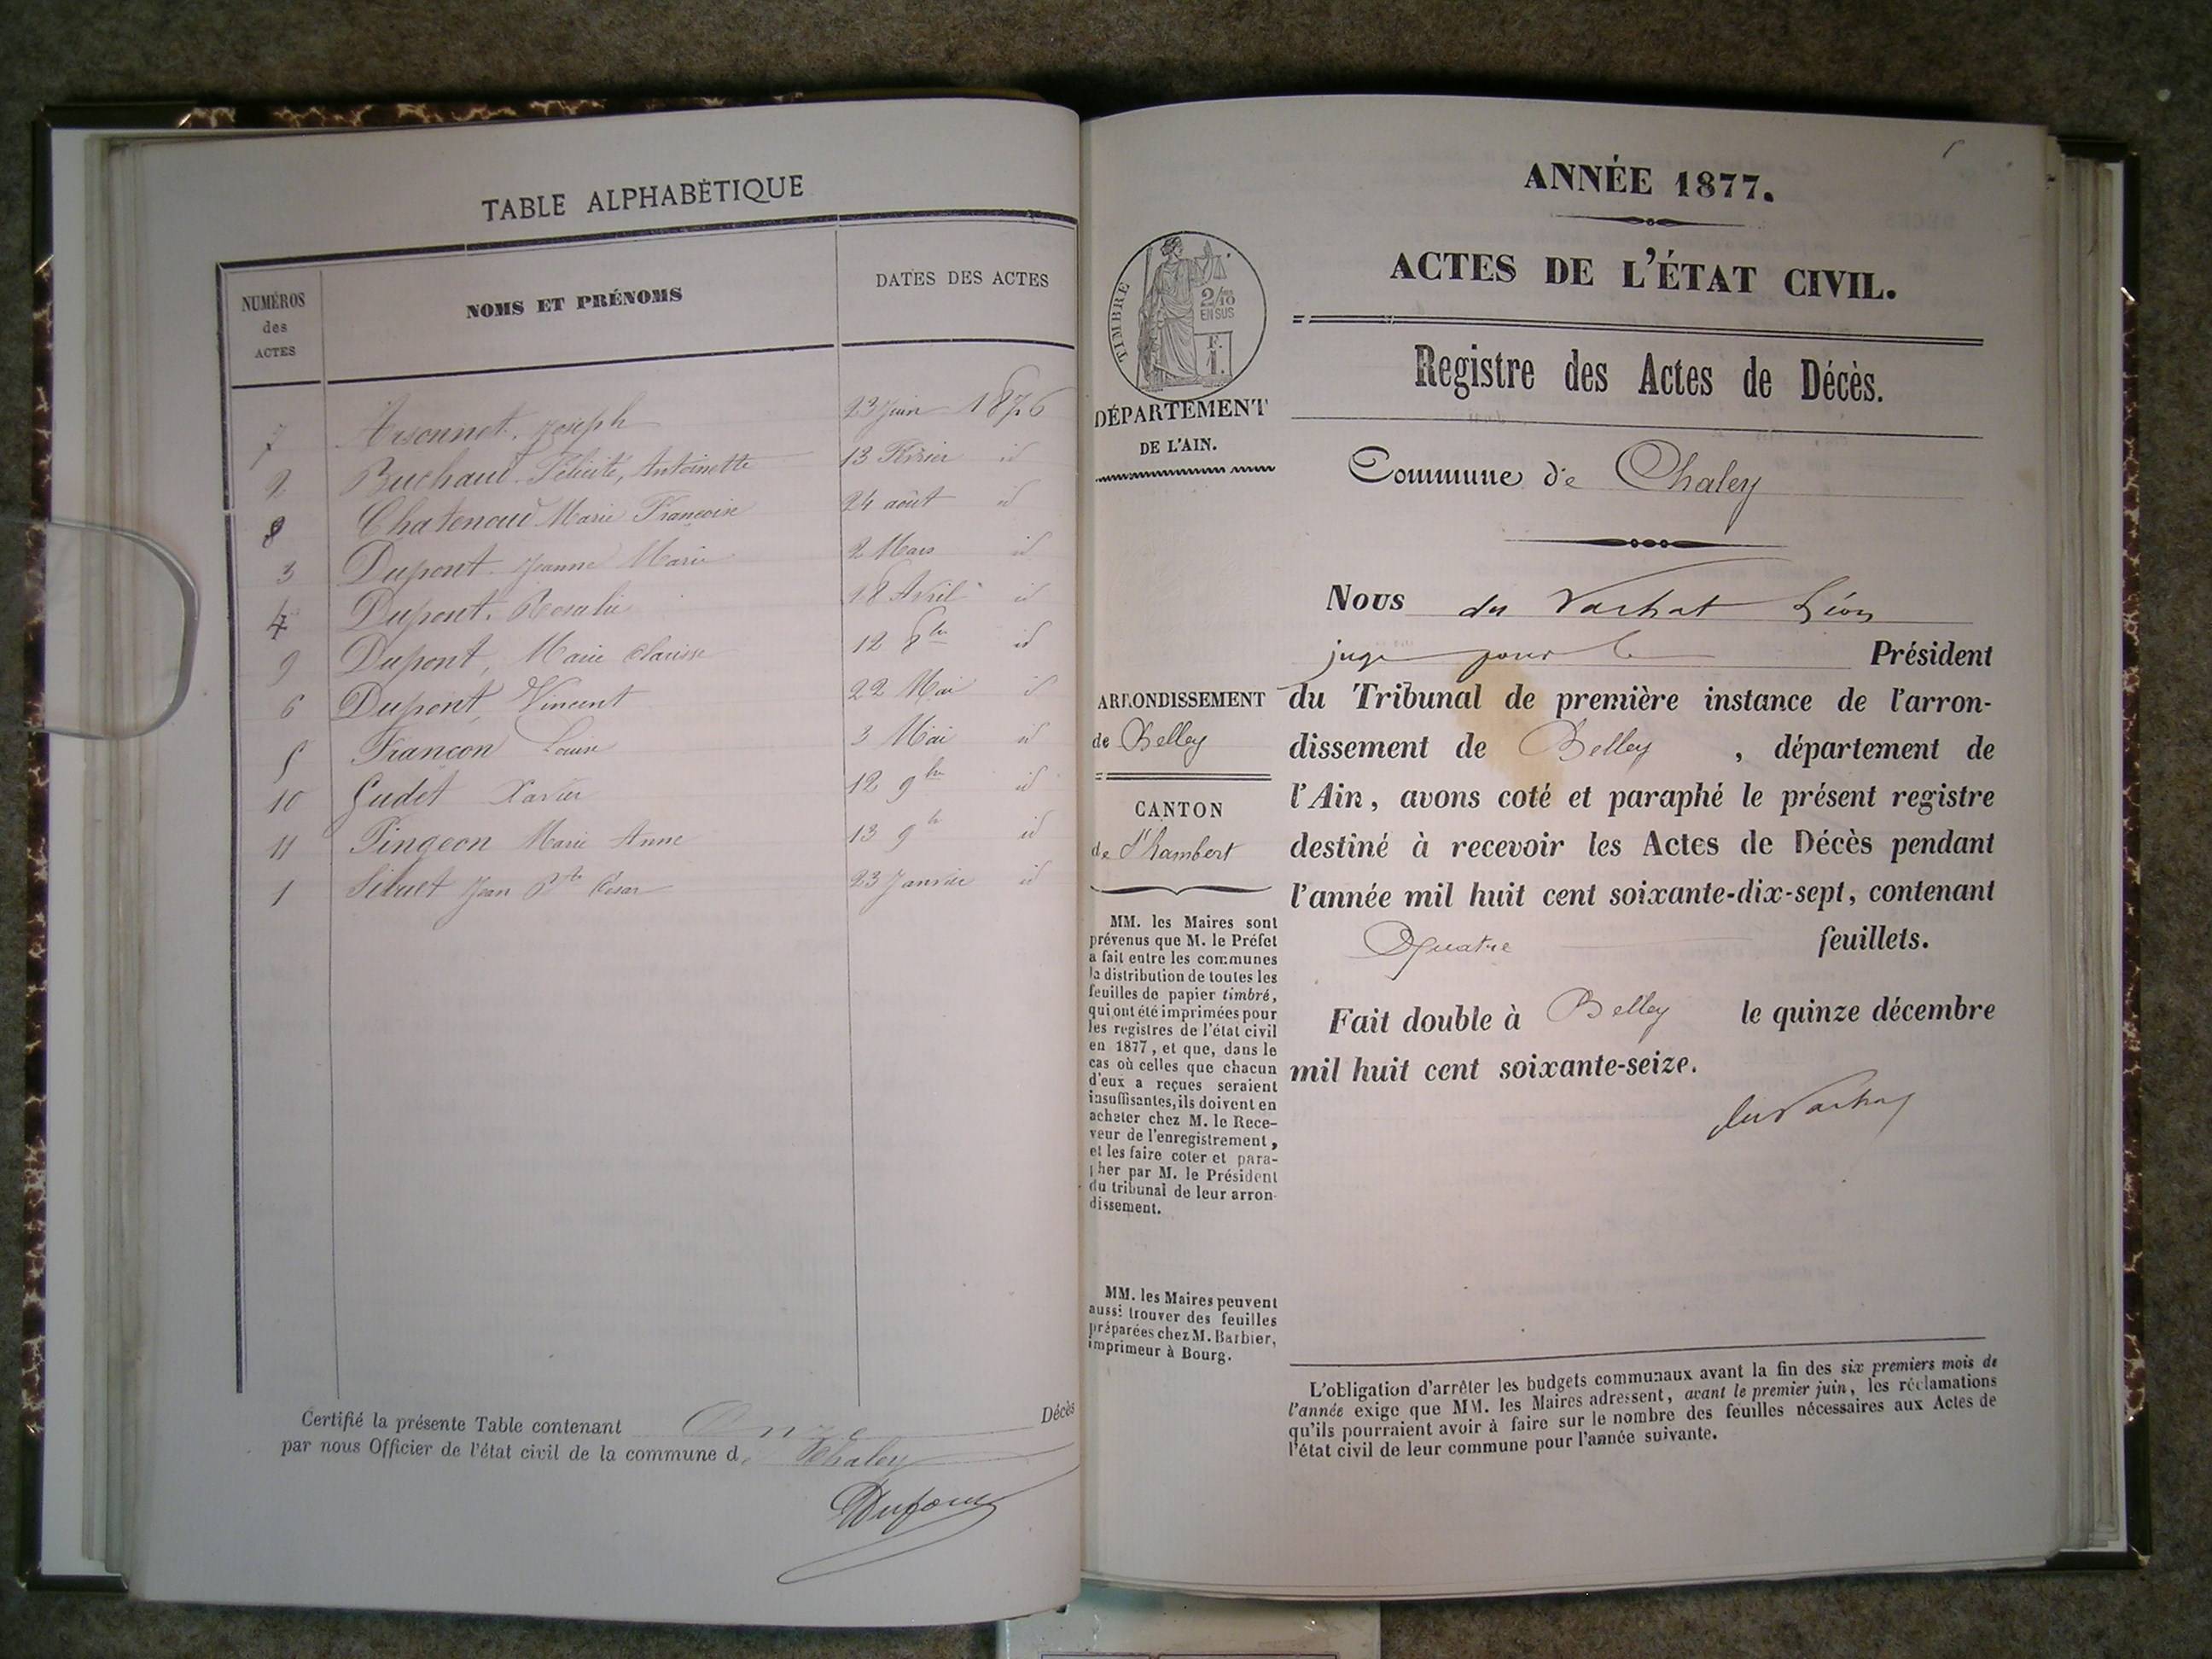 TABLE ALPHABÉTIQUE
NUMÉROS des ACTES NOMS ET PRÉNOMS DATES DES ACTES
7 Joseph 23 Juin 1876
2 Buchaud Félicité, Antoinette 13 Février id
8 Chatenoud Marie Françoise 24 août id
3 Dupont Jeanne Marie 2 Mars id
4 Dupont, Rosalie 18 Avril id
9 Dupont, Marie Clarisse 12 8bre id
6 Dupont, Vincent 22 Mai id
5 Françon Louise 3 Mai id
10 Gudet Xavier 12 9bre id
11 Pingeon Marie Anne 13 9bre id
1 Sibuet Jean Bte César 23 Janvier id
Certifié la présente Table contenant Onze Décès
par nous Officier de l'état civil de la commune de Chaley
Dufour
ANNÉE 1877.
ACTES DE L'ÉTAT CIVIL.
TIMBRE
2/10 EN SUS
F. 1.
DÉPARTEMENT
DE L'AIN.
Registre des Actes de Décès.
Commune de Chaley
Nous du Vachat Léon
juge pour le Président
du Tribunal de première instance de l'arron-
dissement de Belley, département de
l'Ain, avons coté et paraphé le présent registre
destiné à recevoir les Actes de Décès pendant
l'année mil huit cent soixante-dix-sept, contenant
Quatre feuillets.
Fait double à Belley le quinze décembre
mil huit cent soixante-seize.
du Vachat
ARRONDISSEMENT
de Belley
CANTON
de St Rambert
MM. les Maires sont
prévenus que M. le Préfet
a fait entre les communes
la distribution de toutes les
feuilles de papier timbré,
qui ont été imprimées pour
les registres de l'état civil
en 1877, et que, dans le
cas où celles que chacun
d'eux a reçues seraient
insuffisantes, ils doivent en
acheter chez M. le Rece-
veur de l'enregistrement,
et les faire coter et para-
pher par M. le Président
du tribunal de leur arron-
dissement.
MM. les Maires peuvent
aussi trouver des feuilles
préparées chez M. Barbier,
imprimeur à Bourg.
L'obligation d'arrêter les budgets communaux avant la fin des six premiers mois de
l'année exige que MM. les Maires adressent, avant le premier juin, les réclamations
qu'ils pourraient avoir à faire sur le nombre des feuilles nécessaires aux Actes de
l'état civil de leur commune pour l'année suivante.